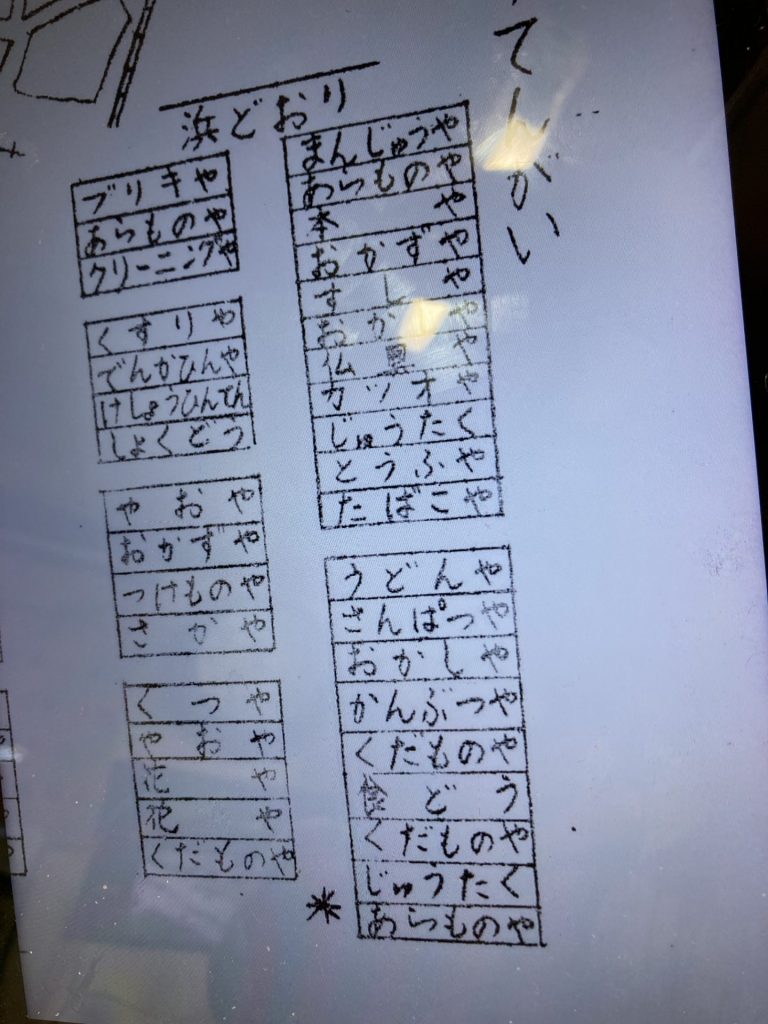 てんがい
浜どおり
ブリキや
あらものや
クリーニングや
くすりや
でんかひんや
けしょうひんてん
しょくどう
やおや
おかずや
つけものや
さかや
くつや
やおや
花や
花や
くだものや
まんじゅうや
あらものや
本や
おかずや
すしや
おか や
仏 や
カツオや
じゅうたく
とうふや
たばこや
うどんや
さんぱつや
おかしや
かんぶつや
くだものや
食どう
くだものや
じゅうたく
＊ あらものや